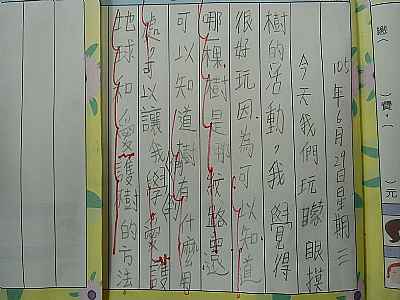 繳（
）費，（
）元
105年6月29日星期三
今天我們玩矇眼摸
樹的活動，我覺得
很好玩因為可以知道
哪棵樹是哪
可以知道樹有什麼用
處，可以讓我學會愛護
地球和愛護樹的方法